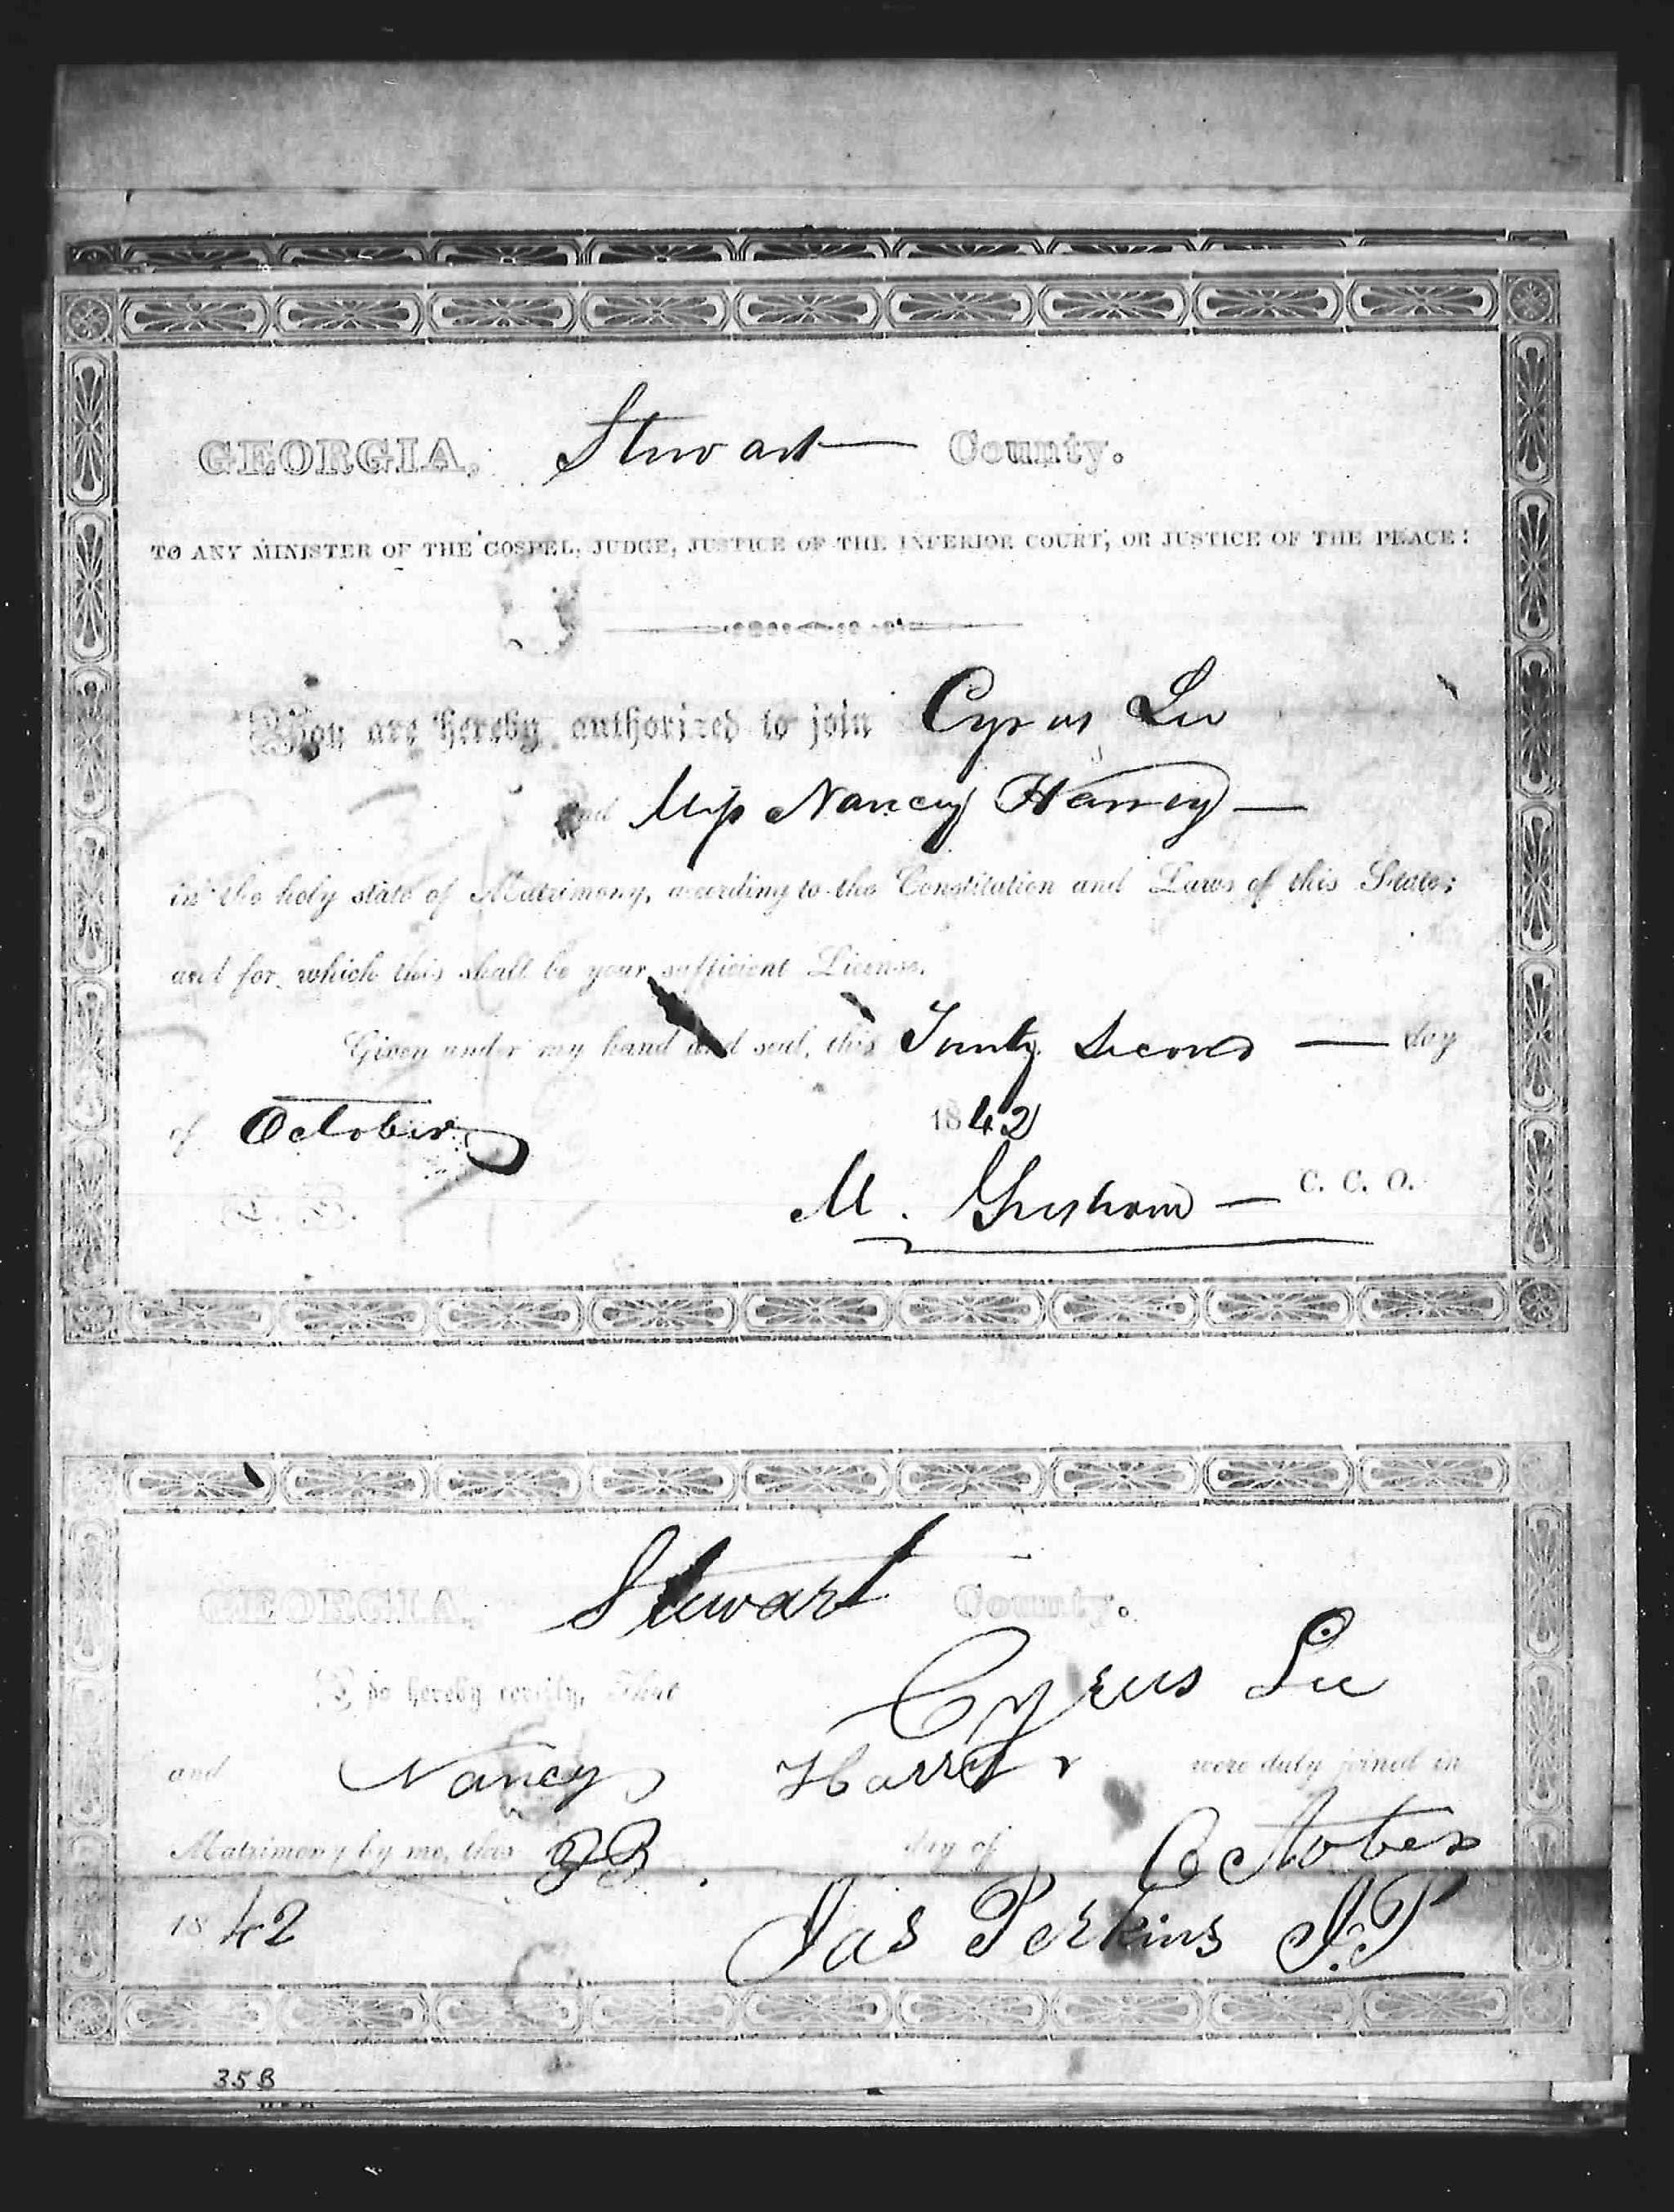 GEORGIA, Stewart County.
TO ANY MINISTER OF THE GOSPEL, JUDGE, JUSTICE OF THE INFERIOR COURT, OR JUSTICE OF THE PEACE:
You are hereby authorized to join Cyrus Lee
and Miss Nancy
in the holy state of Matrimony, according to the Constitution and Laws of this State;
and for which this shall be your sufficient License.
Given under my hand and seal, this Twenty Second — day
of October 1842
M. Gresham — C. C. O.
GEORGIA, Stewart County.
I do hereby certify, That Cyrus Lee
and Nancy were duly joined in
Matrimony by me, this 23 day of October
1842 Jas Perkins J.P
35B